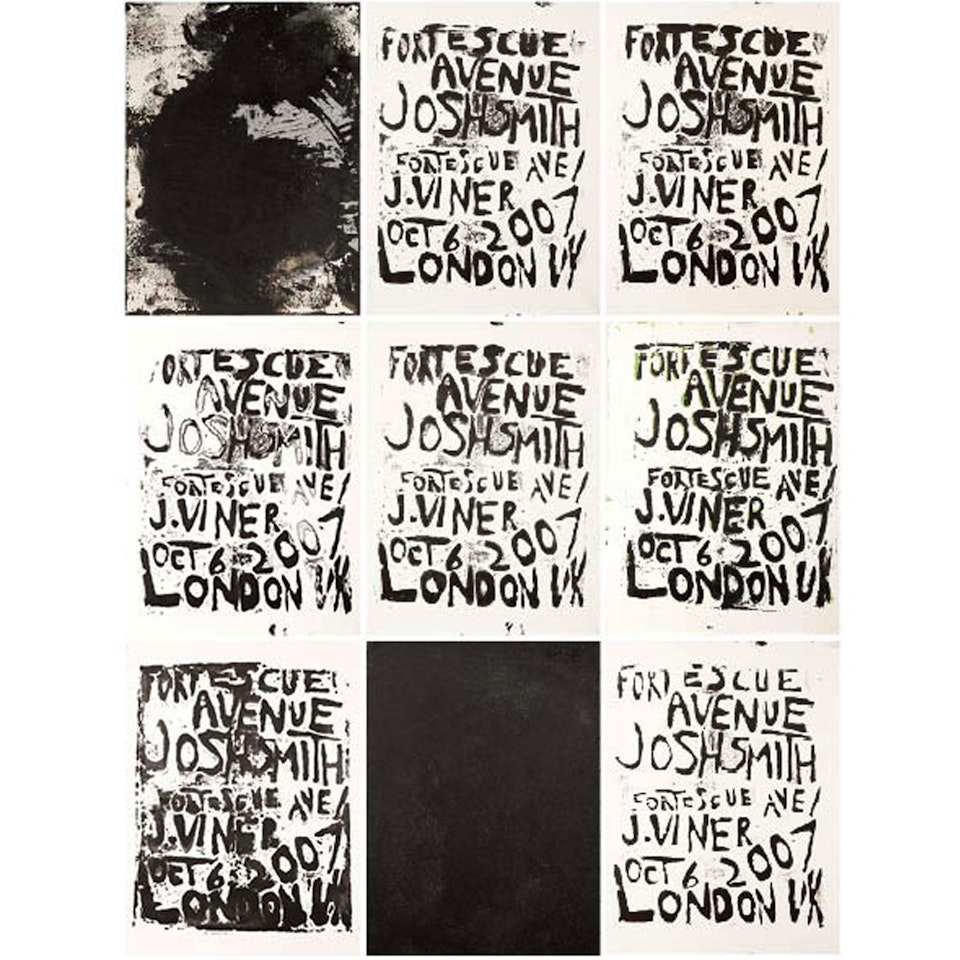 FORTESCUE
AVENUE
JOSHSMITH
FORTESCUE AVE/
J.VINER
OCT 6 2007
LONDON UK
FORTESCUE
AVENUE
JOSHSMITH
FORTESCUE AVE/
J.VINER
OCT 6 2007
LONDON UK
FORTESCUE
AVENUE
JOSHSMITH
FORTESCUE AVE/
J.VINER
OCT 6 2007
LONDON UK
FORTESCUE
AVENUE
JOSHSMITH
FORTESCUE AVE/
J.VINER
OCT 6 2007
LONDON UK
FORTESCUE
AVENUE
JOSHSMITH
FORTESCUE AVE/
J.VINER
OCT 6 2007
LONDON UK
FORTESCUE
AVENUE
JOSHSMITH
FORTESCUE AVE/
J.VINER
OCT 6 2007
LONDON UK
FORTESCUE
AVENUE
JOSHSMITH
FORTESCUE AVE/
J.VINER
OCT 6 2007
LONDON UK